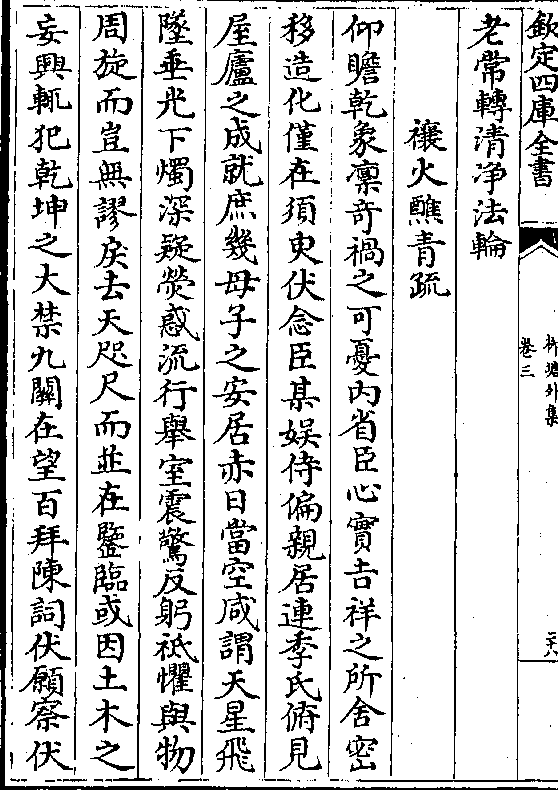 欽定四庫全書
老常轉清浄法輪
禳火醮青疏
仰瞻乾象凛竒禍之可憂内省臣心實吉祥之所舍密
移造化僅在須臾伏念臣某娱侍偏親居連季氏俯見
屋廬之成就庶幾母子之安居赤日當空咸謂天星飛
墜垂光下燭深疑熒惑流行舉室震驚反躬祗懼與物
周旋而豈無謬戾去天咫尺而並在鑒臨或因土木之
妄興輒犯乾坤之大禁九關在望百拜陳詞伏願察伏
外集
卷三